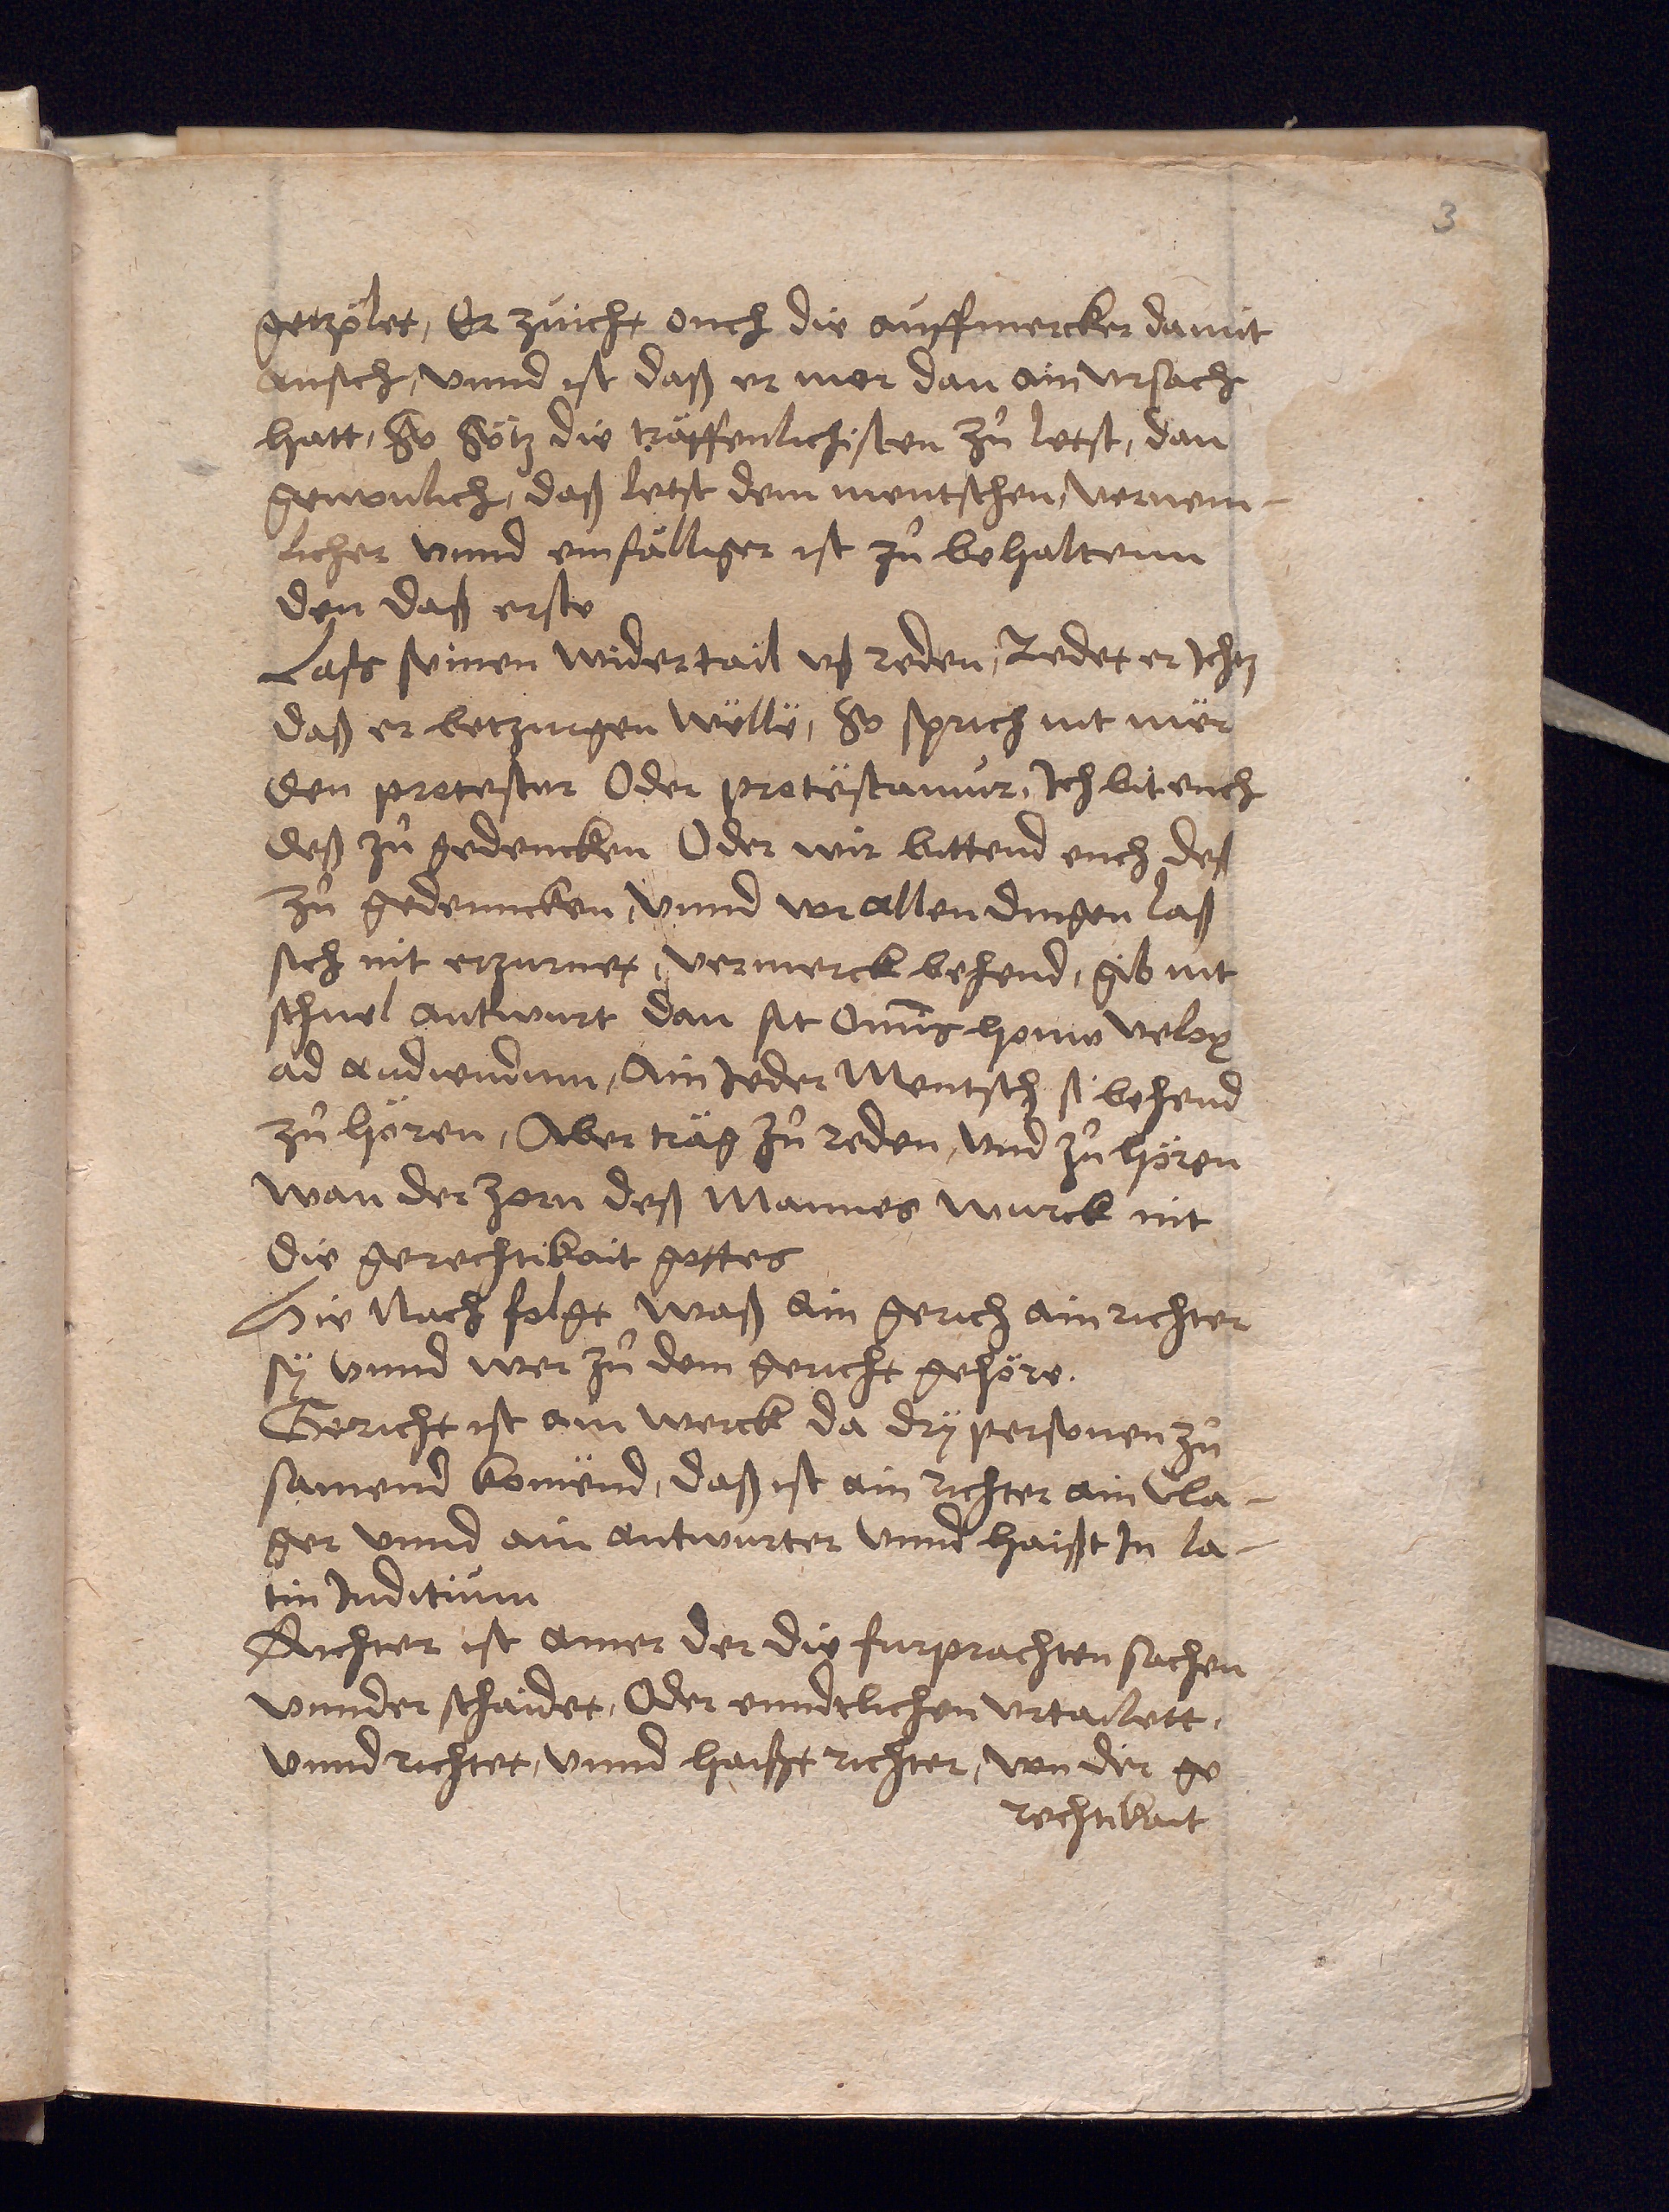 3
getzölet, Er zuicht ouch die auffmercker damit
ansich, vnnd ist daß er mer dan ain vrsach
hatt, So sötz die träffenlichisten zů letst, dan
gewonlich, daß letst dem mentschen, vernem-
licher vnnd einfälliger ist zů behaltenn
den daß erste
Lass seinen widertail vß reden, Redet er Ichtz
daß er betzurgen wëllë, So sprich nit mër
den protestor Oder protëstamur, Ich bit euch
deß zů gedencken Oder wir bittend euch deß
zů gedenncken, vnnd vor allen dingen laß
dich nit erzurnet, vermerck behend, gib nit
schnel antwurt dan sit Omnis homo velox
ad audiendum, Ain Ieder Mentsch si behend
zů hören, Aber träg zů reden, vnd zů hören
wan der zorn deß Mannes wurck nit
die gerechtikait gottes
Hie Nach folgt waß ain gerich ain richter
sÿ vnnd wer zů dem gericht gehöre.
Gericht ist ain werck da drÿ personen zů
samend komënd, daß ist ain richter ain Cla-
ger vnnd ain antwurter vnnd haißt In la-
tin Inditium
Richter ist ainer der die furprachten sachen
vnnder schaidet, Oder enndtlichen vrtailett,
vnnd richtet, vnnd haißt richter, von der ge
rechtikait